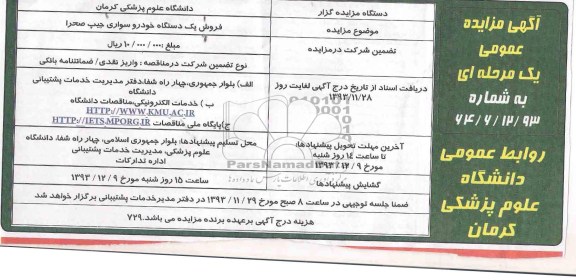 آگهی مزایده
عمومی
یک مرحله ای
به شماره
۶۴/۶/۱۲/۹۳
روابط عمومی
دانشگاه
علوم پزشکی
کرمان
دستگاه مزایده گزار
دانشگاه علوم پزشکی کرمان
موضوع مزایده
فروش یک دستگاه خودرو سواری جیپ صحرا
تضمین شرکت درمزایده
مبلغ ۱۰/۰۰۰/۰۰۰ ریال
نوع تضمین شرکت درمناقصه : واریز نقدی/ ضمانتنامه بانکی
دریافت اسناد از تاریخ درج آگهی لغایت روز
۱۳۹۳/۱۱/۲۸
الف) بلوار جمهوری،چهار راه شفا،دفتر مدیریت خدمات پشتیبانی
دانشگاه
ب ) خدمات الکترونیکی،مناقصات دانشگاه
HTTP://WWW.KMU.AC.IR
ج)پایگاه ملی مناقصات HTTP://IETS.MPORG.IR
آخرین مهلت تحویل پیشنهادها:
تا ساعت ۱۴ روز شنبه
مورخ ۹ / ۱۲ / ۱۳۹۳
محل تسلیم پیشنهادها: بلوار جمهوری اسلامی، چهار راه شفا، دانشگاه
علوم پزشکی، مدیریت خدمات پشتیبانی
اداره تدارکات
گشایش پیشنهادها
ساعت ۱۵ روز شنبه مورخ ۹ / ۱۲ / ۱۳۹۳
ضمنا جلسه توجیهی در ساعت ۸ صبح مورخ ۲۹ / ۱۱ / ۱۳۹۳ در دفتر مدیرخدمات پشتیبانی برگزار خواهد شد
هزینه درج آگهی برعهده برنده مزایده می باشد.۷۲۹